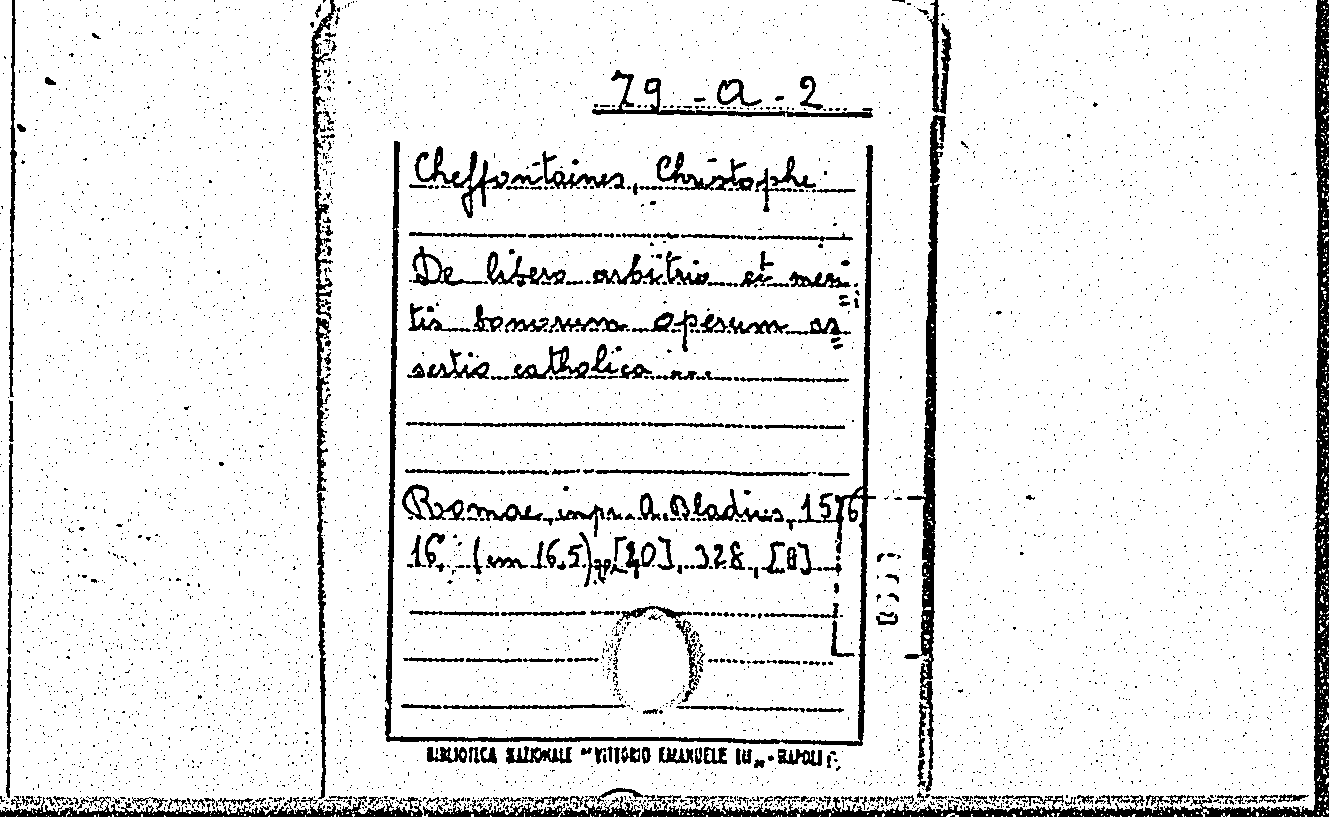 79 - A - 2
Cheffontaines, Christophe
De libero arbitrio et meri=
tis bonorum operum as=
sertio catholica ...
Romae, impr. A. Bladius, 1576
16. (cm 16,5) pp. [20], 328, [8]
BIBLIOTECA NAZIONALE "VITTORIO EMANUELE III" - NAPOLI